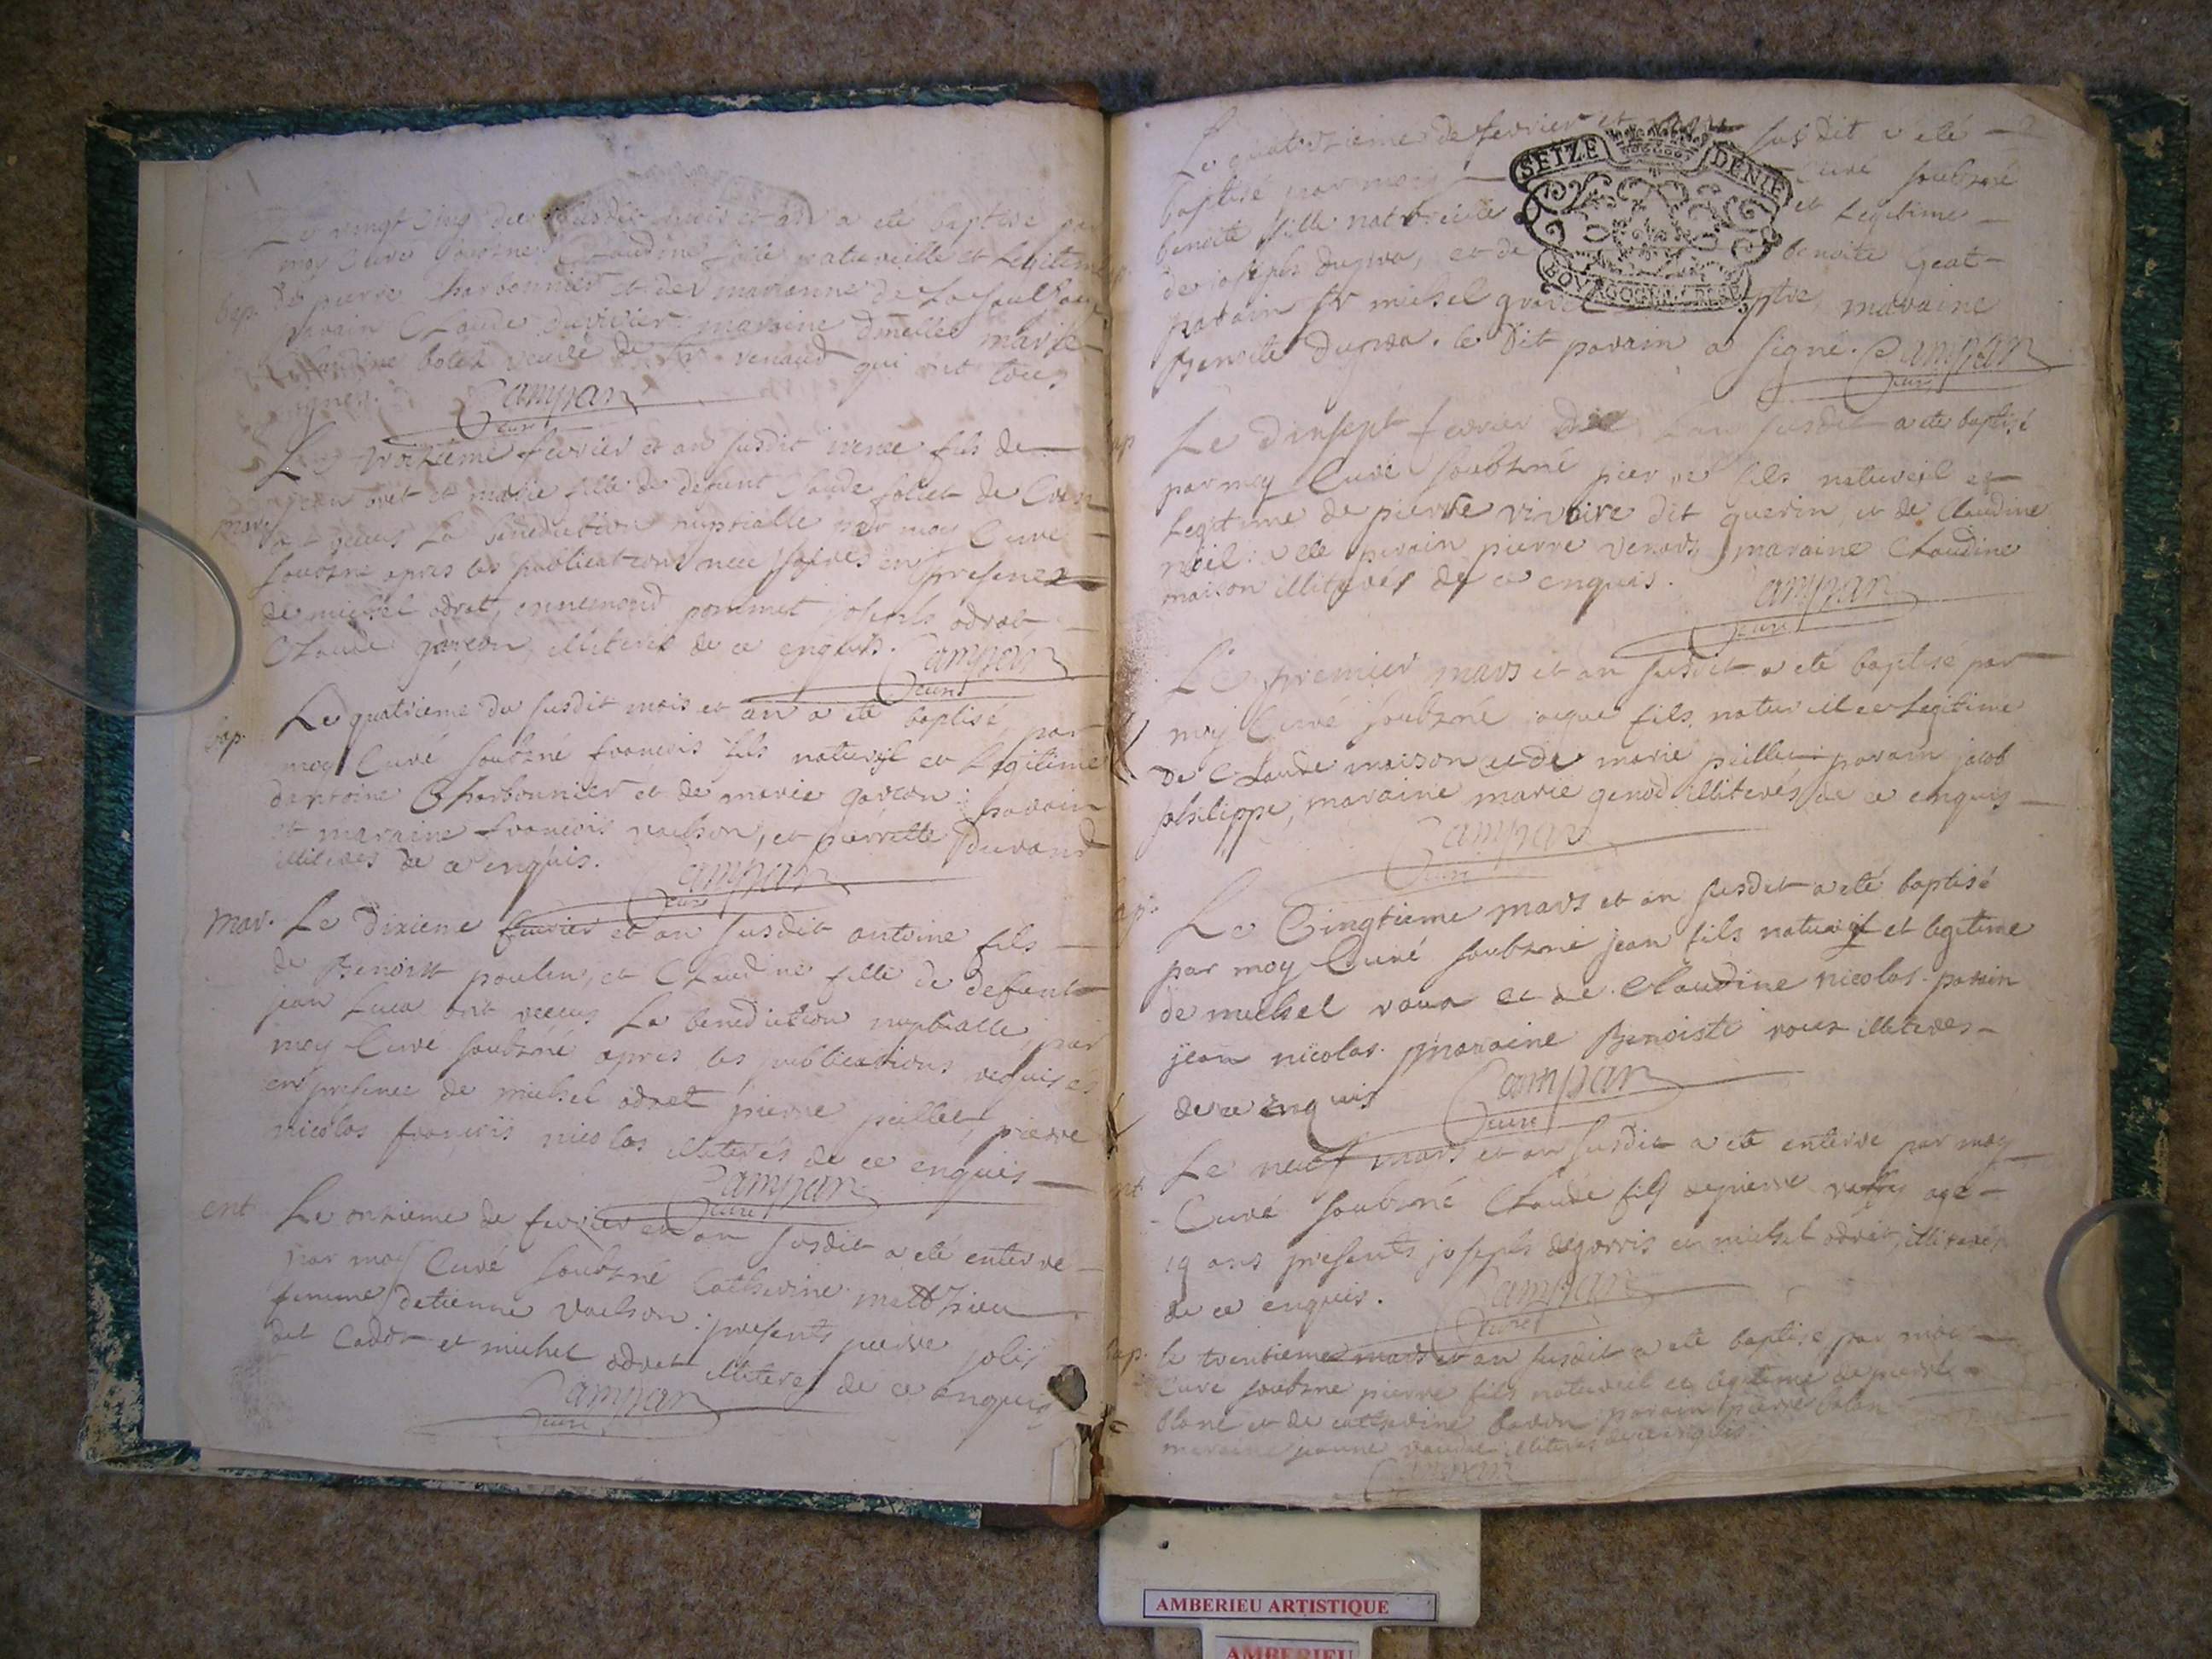 Le vingt cinq du susdit mois et an a ete baptise par
moy Curé soubzné Claudine fille natureille et Legitime
bap. de pierre Charbonnier et de marianne de
parain Claude Duvivier maraine dmelle marie
veuve de Sr renaud qui ont tous
signes. Campan
Curé
Le troizieme fevrier et an susdit fils de
mar. jean et marie fille de defunt Claude Joliet de
ont receus La benediction nuptialle par moy Curé
soubzné apres les publications necessaires en presence
de michel odret, ennemond pommet joseph odret
Claude garçon illiteres de ce enquis. Campan
Curé
bap. Le quatrieme du susdit mois et an a eté baptisé par
moy Curé soubzné francois fils natureil et Legitime
dantoine Charbonnier et de marie garcon: parain
et maraine francois vaelson, et pierrette Durand
illiteres de ce enquis. Campan
Curé
mar. Le dixieme fevrier et an susdit antoine fils
de Benoist poulin, et Claudine fille de defunt
jean Luca ont receus La benediction nuptialle par
moy Curé soubzné apres les publications requises
en presence de michel odret pierre peillet, pierre
nicolas francois nicolas illiterés de ce enquis
Campan
Curé
ent Le onzieme de fevrier et an susdit a eté enterre
par moy Curé soubzné Catherine matthieu
femme detienne vaelson: presents pierre jolis
dit Cador et michel odret illiteres de ce enquis
Campan
Curé
Le quatorzieme de fevrier et susdit a eté
baptisé par moy Curé soubzné
benoite fille natureille et Legitime
de joseph et de benoite Geat
parain Sr michel maraine
Benoite . le Dit parain a signé. Campan
Curé
SEIZE DENIE
BOURGOGNE BRESSE
bap Le dixsept fevrier Lan susdit a ete baptisé
par moy Curé soubzné pierre fils natureil et
Legitime de pierre riviere dit guerin et de Claudine
parain pierre venard, maraine Claudine
maison illiterés de ce enquis. Campan
Curé
Le premier mars et an susdit a eté baptisé par
moy Curé soubzné jaque fils natureil et Legitime
De Claude maison et de marie peillet parain jacob
philippe, maraine marie genod illiterés de ce enquis
Campan
Curé
bap. Le Cinqtieme mars et an susdit a eté baptisé
par moy Curé soubzné jean fils natureil et legitime
de michel roux et de Claudine nicolas. parain
jean nicolas. maraine Benoiste roux illiteres
de ce enquis Campan
Curé
ent Le neuf mars et an susdit a eté enterre par moy
Curé soubzné Claude fils depierre age
19 ans presents joseph degorris et michel odret illiterés
de ce enquis. Campan
Curé
bap. le trentieme mars et an susdit a eté baptise par moi
Curé soubzne pierre fils natureil et legitime depierre
blanc et de catherine parain pierre
maraine jeanne illiteres de ce enquis.
Campan
AMBERIEU ARTISTIQUE
AMBERIEU